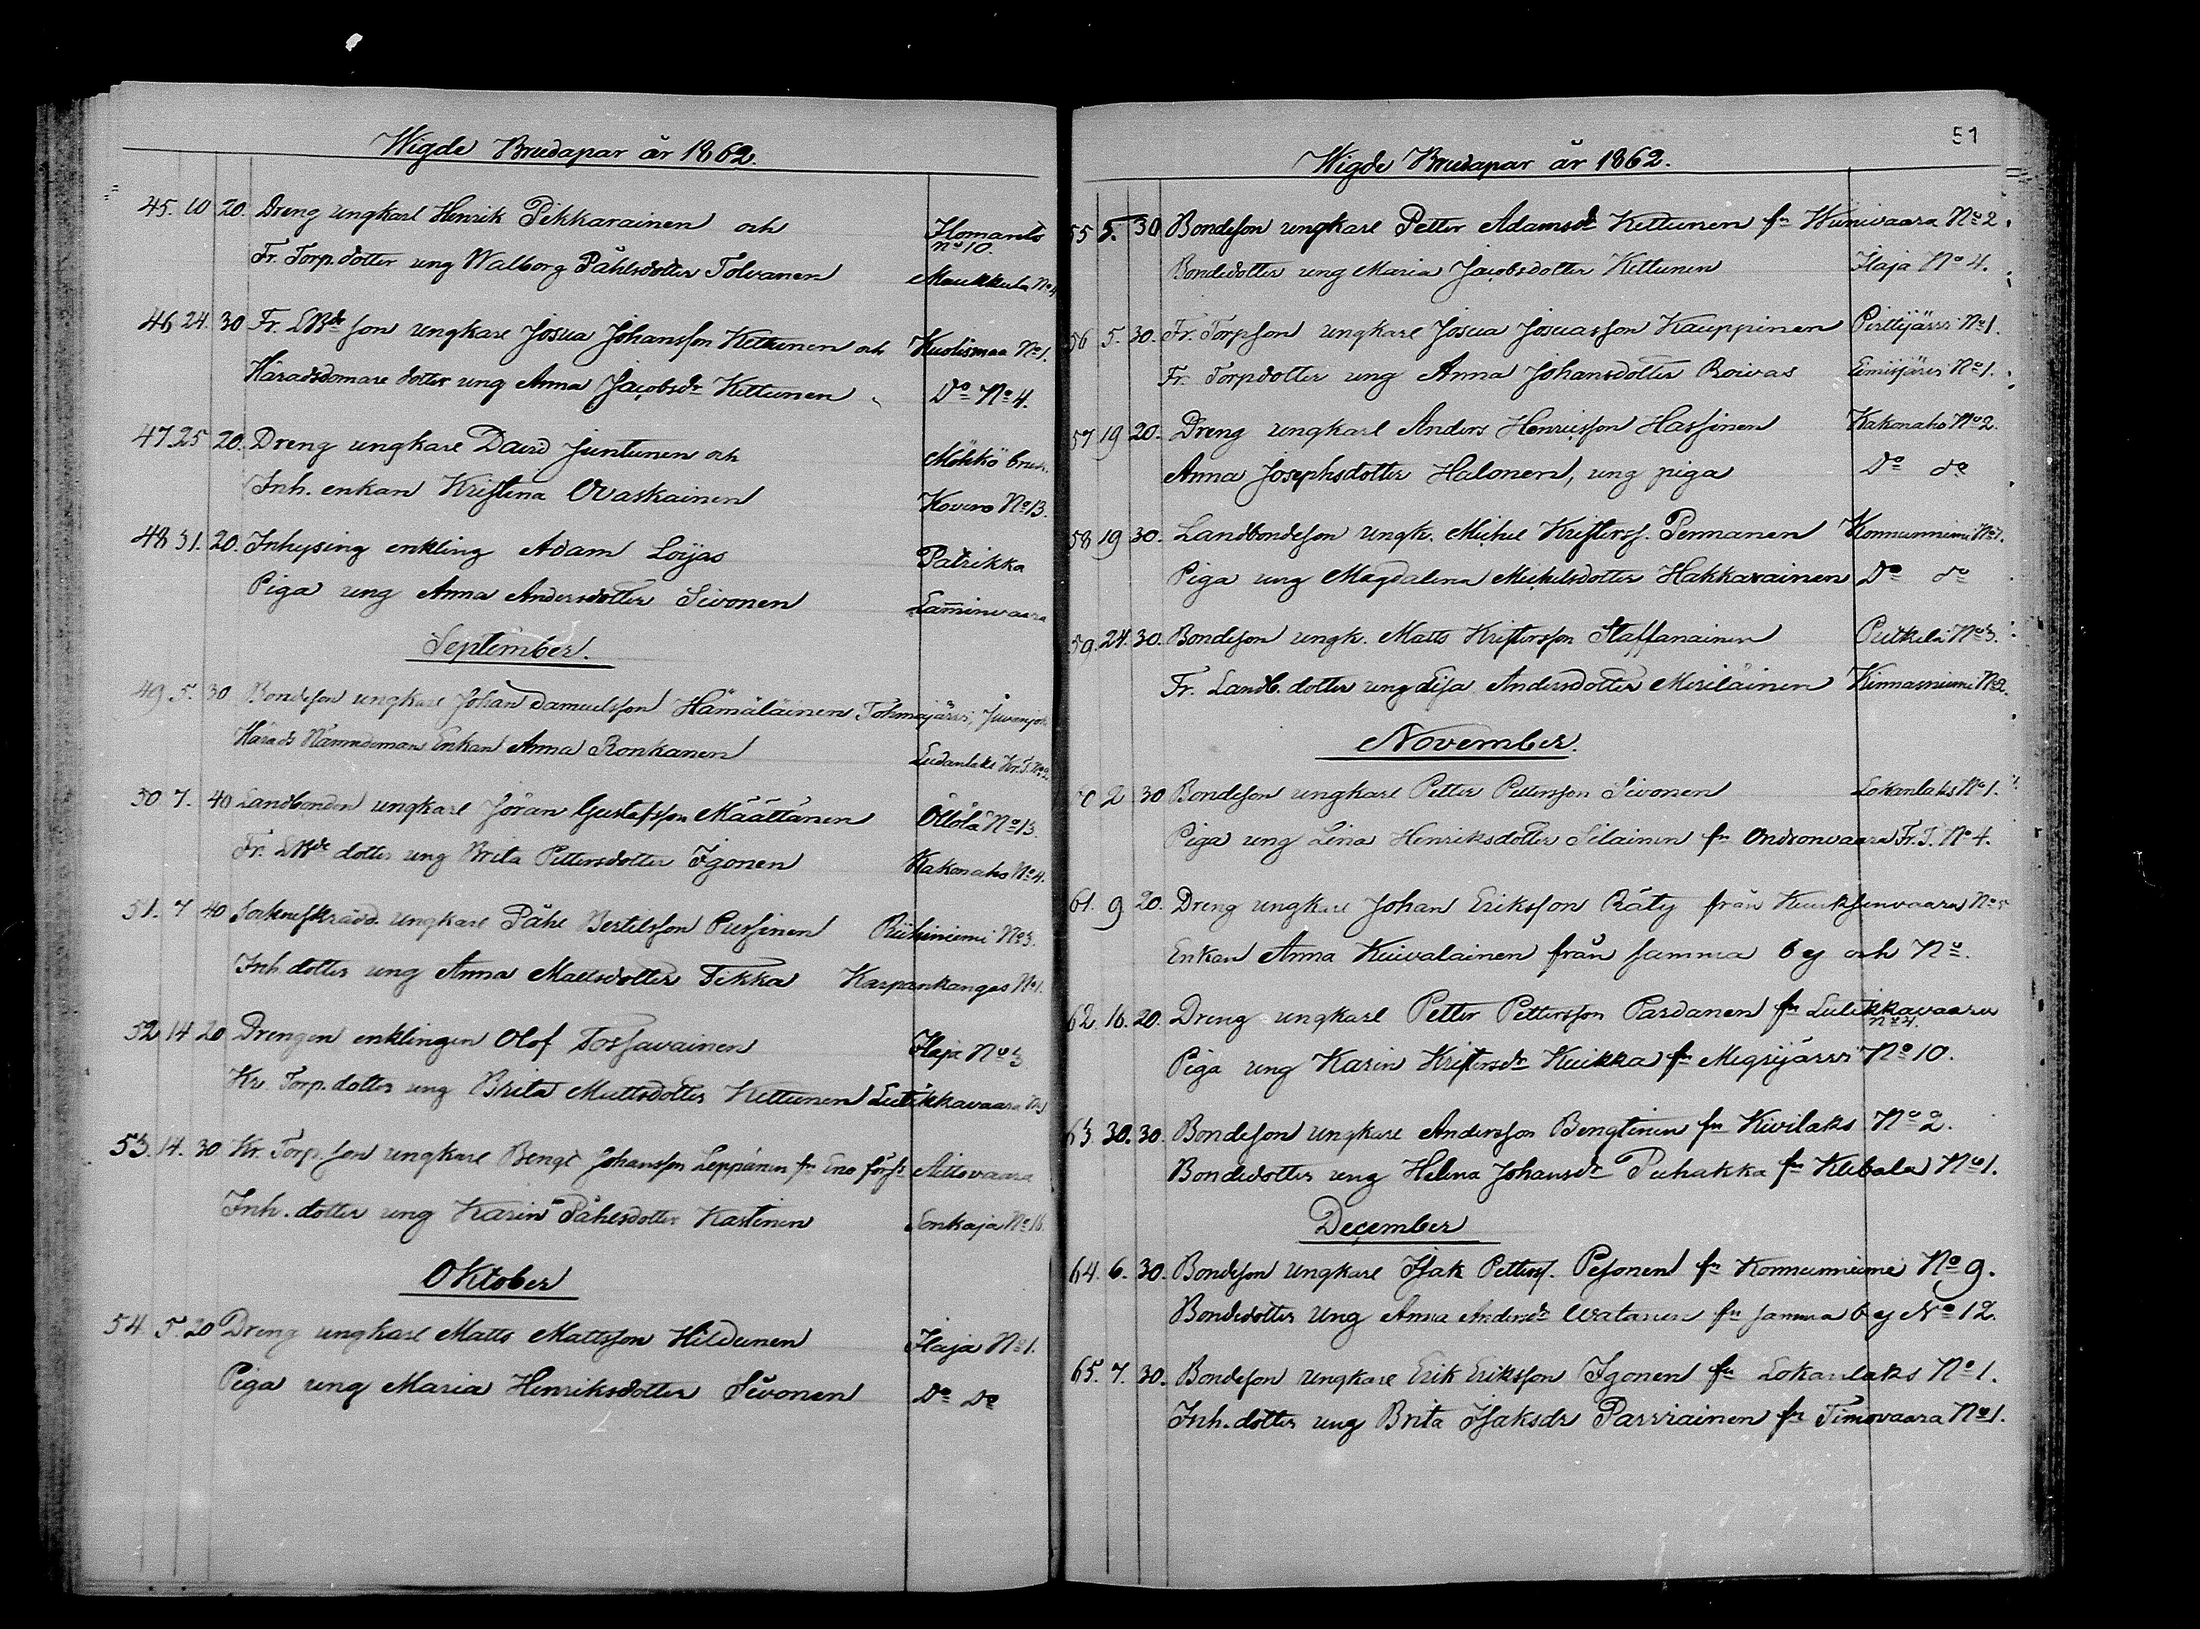 Wigde Brudapar år 1862.
45. 10 20. Dreng ungkarl Henrik Pikkarainen och Ilomants No 10.
Fr. Torp. dotter ung Walborg Påhlsdotter Tolvanen Maukkula No 4
46 24. 30 Fr. LBde son ungkarl Josua Johansson Kettunen och Kuolismaa No 1.
Häradsdomare dotter ung Anna Jacobsdr Kettunen Do No 4.
47 25 20. Dreng ungkarl David Juntunen och Möhkö bruk.
Inh. enkan Kristina Ovaskainen Kovero No 13.
48 31. 20. Inhysing enkling Adam Loijas Patrikka
Piga ung Anna Andersdotter Sivonen Lamminvaara
September.
49. 5. 30 Bondeson ungkarl Johan Samuelsson Hämäläinen Tohmajärvi,
Härads Nämndemans Enkan Anna Ronkanen Ludanlaks Kr. T. No 2
50 7. 40 Landbonden ungkarl Jöran Gustafsson Määttänen Öllölä No 13.
Fr. LBde dotter ung Brita Pettersdotter Igonen Kakonaho No 4.
51. 7 40 Sockneskrädd. ungkarl Påhl Bertilsson Pussinen Riihiniemi No 3.
Inh. dotter ung Anna Mattsdotter Tikka Karpankangas No 1.
52 14 20 Drengen enklingen Olof Tossavainen Ilaja No 3
Kr. Torp. dotter ung Brita Mattsdotter Kettunen Lutikkavaara
53. 14. 30 Kr. Torp. son ungkarl Bengt Johansson Leppänen fn Eno förs:
Inh. dotter ung Karin Påhlsdotter Kastinen Sonkaja No 16.
Oktober
54. 5. 20 Dreng ungkarl Matts Mattsson Hildunen Ilaja No 1.
Piga ung Maria Henriksdotter Sivonen Do Do
51
Wigde Brudapar år 1862.
55 5. 30 Bondeson ungkarl Petter Adamsdr Kettunen fn Wunivaara No 2.
Bondedotter ung Maria Jacobsdotter Kettunen Ilaja No 4.
56 5. 30. Fr. Torpson ungkarl Josua Josuasson Kauppinen Pirttijärvi No 1.
Fr. Torpdotter ung Anna Johansdotter Roivas Lemisjärvi No 1.
57 19 20. Dreng ungkarl Anders Henricsson Hassinen Kakonaho No 2.
Anna Josephsdotter Halonen, ung piga Do do
58 19 30. Landbondeson ungk. Michel Kristerss. Pennanen Konnunniemi No 7.
Piga ung Magdalena Michelsdotter Hakkarainen Do do
59. 24. 30. Bondeson ungk. Matts Kristersson Staffanainen Putkela No 3.
Fr. Landb. dotter ung Lisa Andersdotter Meriläinen Kinnasniemi No 2.
November.
0 2 30 Bondeson ungkarl Petter Pettersson Sivonen Lokanlaks No 1.
Piga ung Lina Henriksdotter Silainen fn Ondronvaara Fr. T. No 4.
61. 9 20. Dreng ungkarl Johan Eriksson Räty från Kuuksenvaara No 5
Enkan Anna Kuivalainen från samma by och No.
62. 16. 20. Dreng ungkarl Petter Pettersson Pardanen fn Lutikkavaara No 4.
Piga ung Karin Kristersdr Kuikka fn Megrijärvi No 10.
63. 30. 30. Bondeson ungkarl Andersson Bengtinen fn Kivilaks No 2.
Bondedotter ung Helena Johansdr Puhakka fn Kelibala No 1.
December
64. 6. 30. Bondeson ungkarl Isak Petterss. Pesonen fn Konnunniemi No 9.
Bondedotter ung Anna Andersdr Watanen fn samma by No 12.
65. 7. 30. Bondeson ungkarl Erik Eriksson Igonen fn Lokanlaks No 1.
Inh. dotter ung Brita Isaksdr Parviainen fn Timovaara No 1.